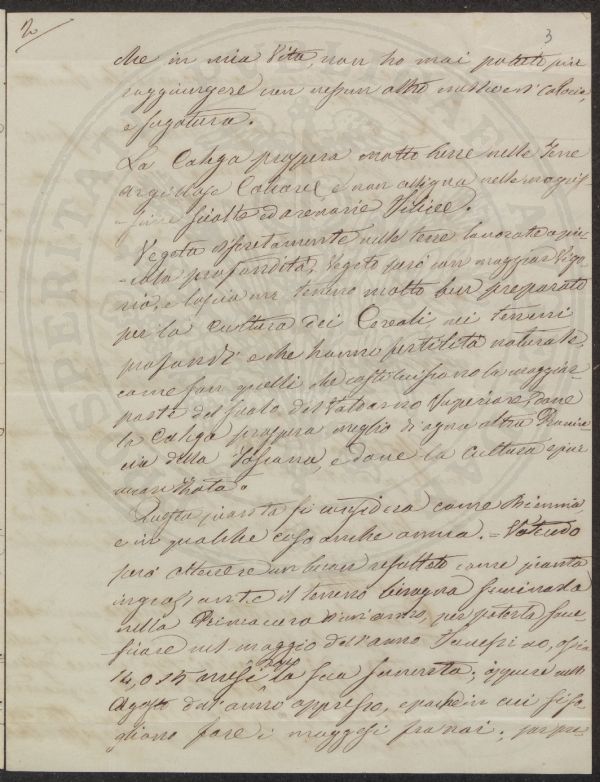 2/
3
che in mia Vita, non ho mai potuto più
raggiungere con nessun altro
e fugatura.
La Calega prospera molto bene nelle Terre
argillose Calcaree e non alligna nelle
sciolte ed arenarie Silicee.
Vegeta nelle terre lavorate a pic-
-cola profondità, Vegeta però con maggior Vigo
ria, e lascia un terreno molto ben preparato
per la Cultura dei Cereali nei Terreni
profondi e che hanno fertilità naturale,
come son quelli che costituiscono la maggior
parte del suolo del Valdarno Superiore dove
la Calega prospera meglio di ogni altra Provin
cia della Toscana, e dove la cultura è più
Questa pianta si considera come Bienne
e in qualche caso anche annua. = Volendo
però ottenere un buon resultato come pianta
ingrassante il terreno bisogna seminarla
nella Primavera d'un anno, per poterla
nel maggio dell'anno
14, o 15 mesi dopo la sua semenza, oppure nell'
Agosto dell'anno appresso, epoche in cui si so
gliono fare i maggesi